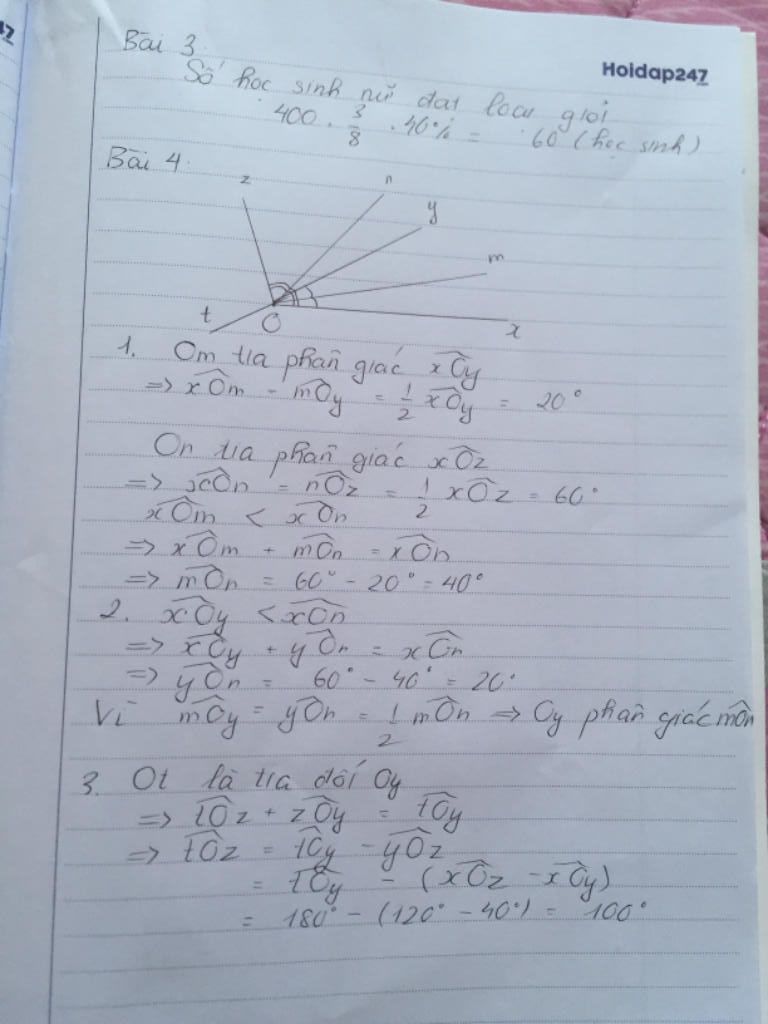 47
Hoidap247
Bài 3
Số học sinh nữ đạt loại giỏi
400 . 3/8 . 40% = 60 (học sinh)
Bài 4.
z n y m
t O x
1. Om tia phân giác xÔy
=> xÔm = mÔy = 1/2 xÔy = 20°
On tia phân giác xÔz
=> xÔn = nÔz = 1/2 xÔz = 60°
xÔm < xÔn
=> xÔm + mÔn = xÔn
=> mÔn = 60° - 20° = 40°
2. xÔy < xÔn
=> xÔy + yÔn = xÔn
=> yÔn = 60° - 40° = 20°
Vì mÔy = yÔn = 1/2 mÔn => Oy phân giác mÔn
3. Ot là tia đối Oy
=> tÔz + zÔy = tÔy
=> tÔz = tÔy - yÔz
= tÔy - (xÔz - xÔy)
= 180° - (120° - 40°) = 100°